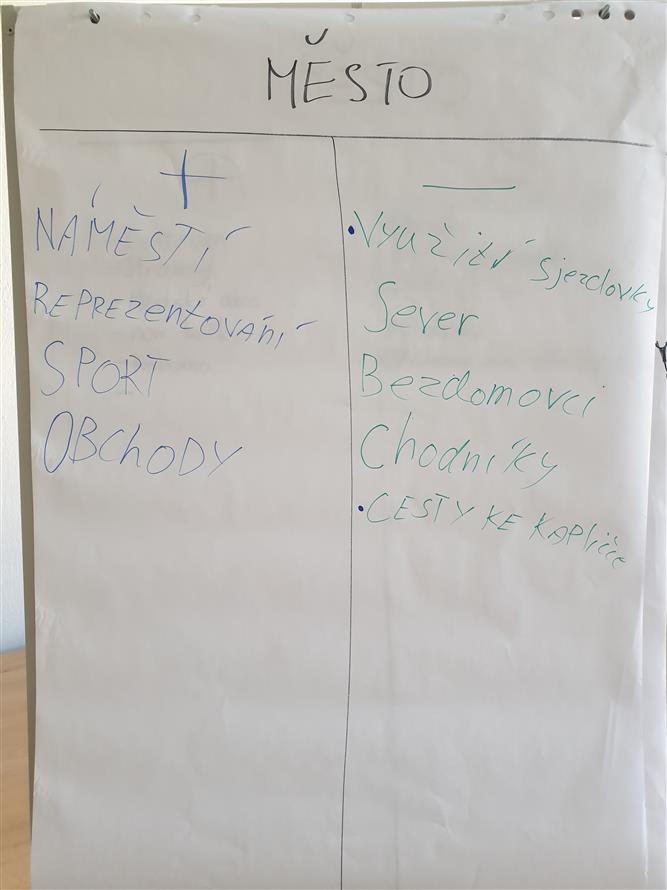 MĚSTO
+
NÁMĚSTÍ
REPREZentovÁní
SPORT
OBChODY
—
• VYUŽITÍ sjezdovky
Sever
Bezdomovci
Chodníky
• CESTY KE KAPličce